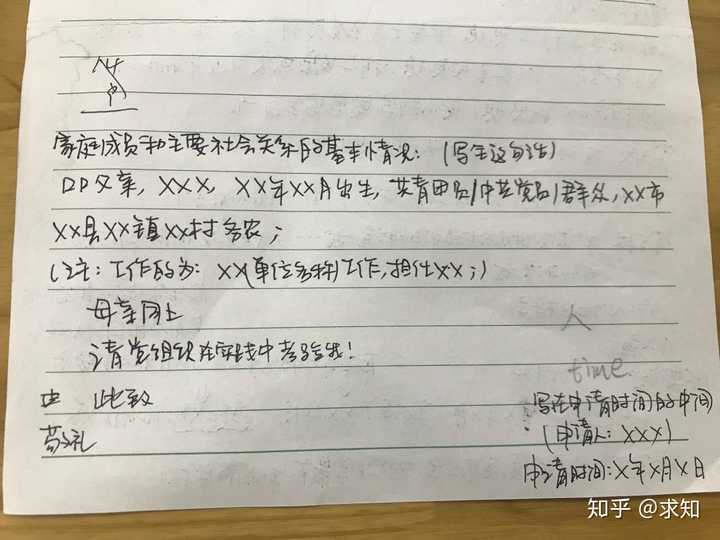 家庭成员和主要社会关系的基本情况:(写上这句话)
口口父亲, XXX, XX年XX月出生, 共青团员/中共党员/群众, XX市
XX县XX镇XX村务农;
(注:工作的为: XX(单位名称)工作,担任XX;)
母亲同上
请党组织在实践中考验我!
此致
敬礼
人
time
写在申请时间的中间
(申请人: XXX)
申请时间:X年X月X日
知乎 @求知